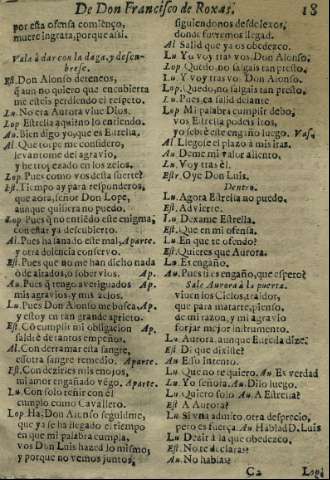 De Don Francisco de Roxas. 18
por esta ofensa comienço,
muere ingrata, porque assi.
Vale a dar con la daga, y descu-
brese.
Est. Don Alonso deteneos,
q aun no quiero que encubierta
me esteis perdiendo el respeto.
Lu. No era Aurora viue Dios.
Lop. Estrella aqui no lo entiendo.
Au. Bien digo yo, que es Estrella.
Al. Que torpe me considero,
leuantome del agravio,
y he tropezado en los zelos.
Lop. Pues como vos desta suerte?
Est. Tiempo ay para responderos,
que aora, señor Don Lope,
aunque quisiera no puedo.
Lop. Pues q no entiendo este enigma,
con estar ya descubierto.
Al. Pues ha llanado este mal, Aparte.
y otra dolencia conservo.
Est. Pues que no me han dicho nada
ò de altados, ò sobervios. Ap.
Au. Pues q tengo aueriguados Ap.
mis agravios, y mis zelos.
Lu. Pues Don Alonso me busca, Ap.
y estoy en tan grande aprieto.
Est. Cõ cumplir mi obligacion Ap.
saldrè de tantos empeños.
Al. Con derramar esta sangre,
essotra sangre remedio. Aparte.
Est. Con deziries mis enojos,
mi amor engañado vego. Aparte.
Lu. Con solo reñir con el
cumplo como Cavallero.
Lop. Ha, Don Alonso seguidme,
que ya se ha llegado el tiempo
en que mi palabra cumpla,
vos Don Luis hazed lo mismo,
y porque no vemos juntos,
siguiendonos desde lexos,
donde fueremos llegad.
Al. Salid que ya os obedezco.
Lu. Yo voy tras vos, Don Alonso.
Lop. Quedo, no salgais tan presto.
Lu. Y voy tras vos, Don Alonso.
Lop. Quedo, no salgais tan presto.
Lu. Pues ea salid delante
Lop. Mi palabra cumplir debo,
vos Estrella podeis iros,
yo sabrè este engaño luego. Vas.
Al. Llegose el plazo à mis iras.
Au. Deme mi valor aliento.
Lu. Voy tras èl.
Estr. Oye Don Luis.
Dentro.
Lu. Agora Estrella no puedo.
Est. Advierte.
Lu. Dexame Estrella.
Est. Que en mi ofensa.
Lu. En que te ofendo?
Est. Quieres que Aurora.
Lu. Es engaño.
Au. Pues si es engaño, que espero?
Sale Aurora à la puerta.
viuen los Cielos, traidor,
que para matarte, pienso,
de mi razon, y mi agravio
forjar mejor instrumento.
Lu. Aurora, aunque Estrella dize.
Est. Di que dixiste?
Au. Esso intento.
Lu. Que no te quiero. Au. Es verdad
Lu. Yo señora. Au. Dilo luego.
Lu. Quiero solo. Au. A Estrella?
Est. A Aurora?
Lu. Si vna admito, otra desprecio,
pero es fuerça. Au. Hablad D. Luis
Lu. Dezir à la que obedezco.
Est. No te declaras?
Au. No hablas?
C2 Lop.